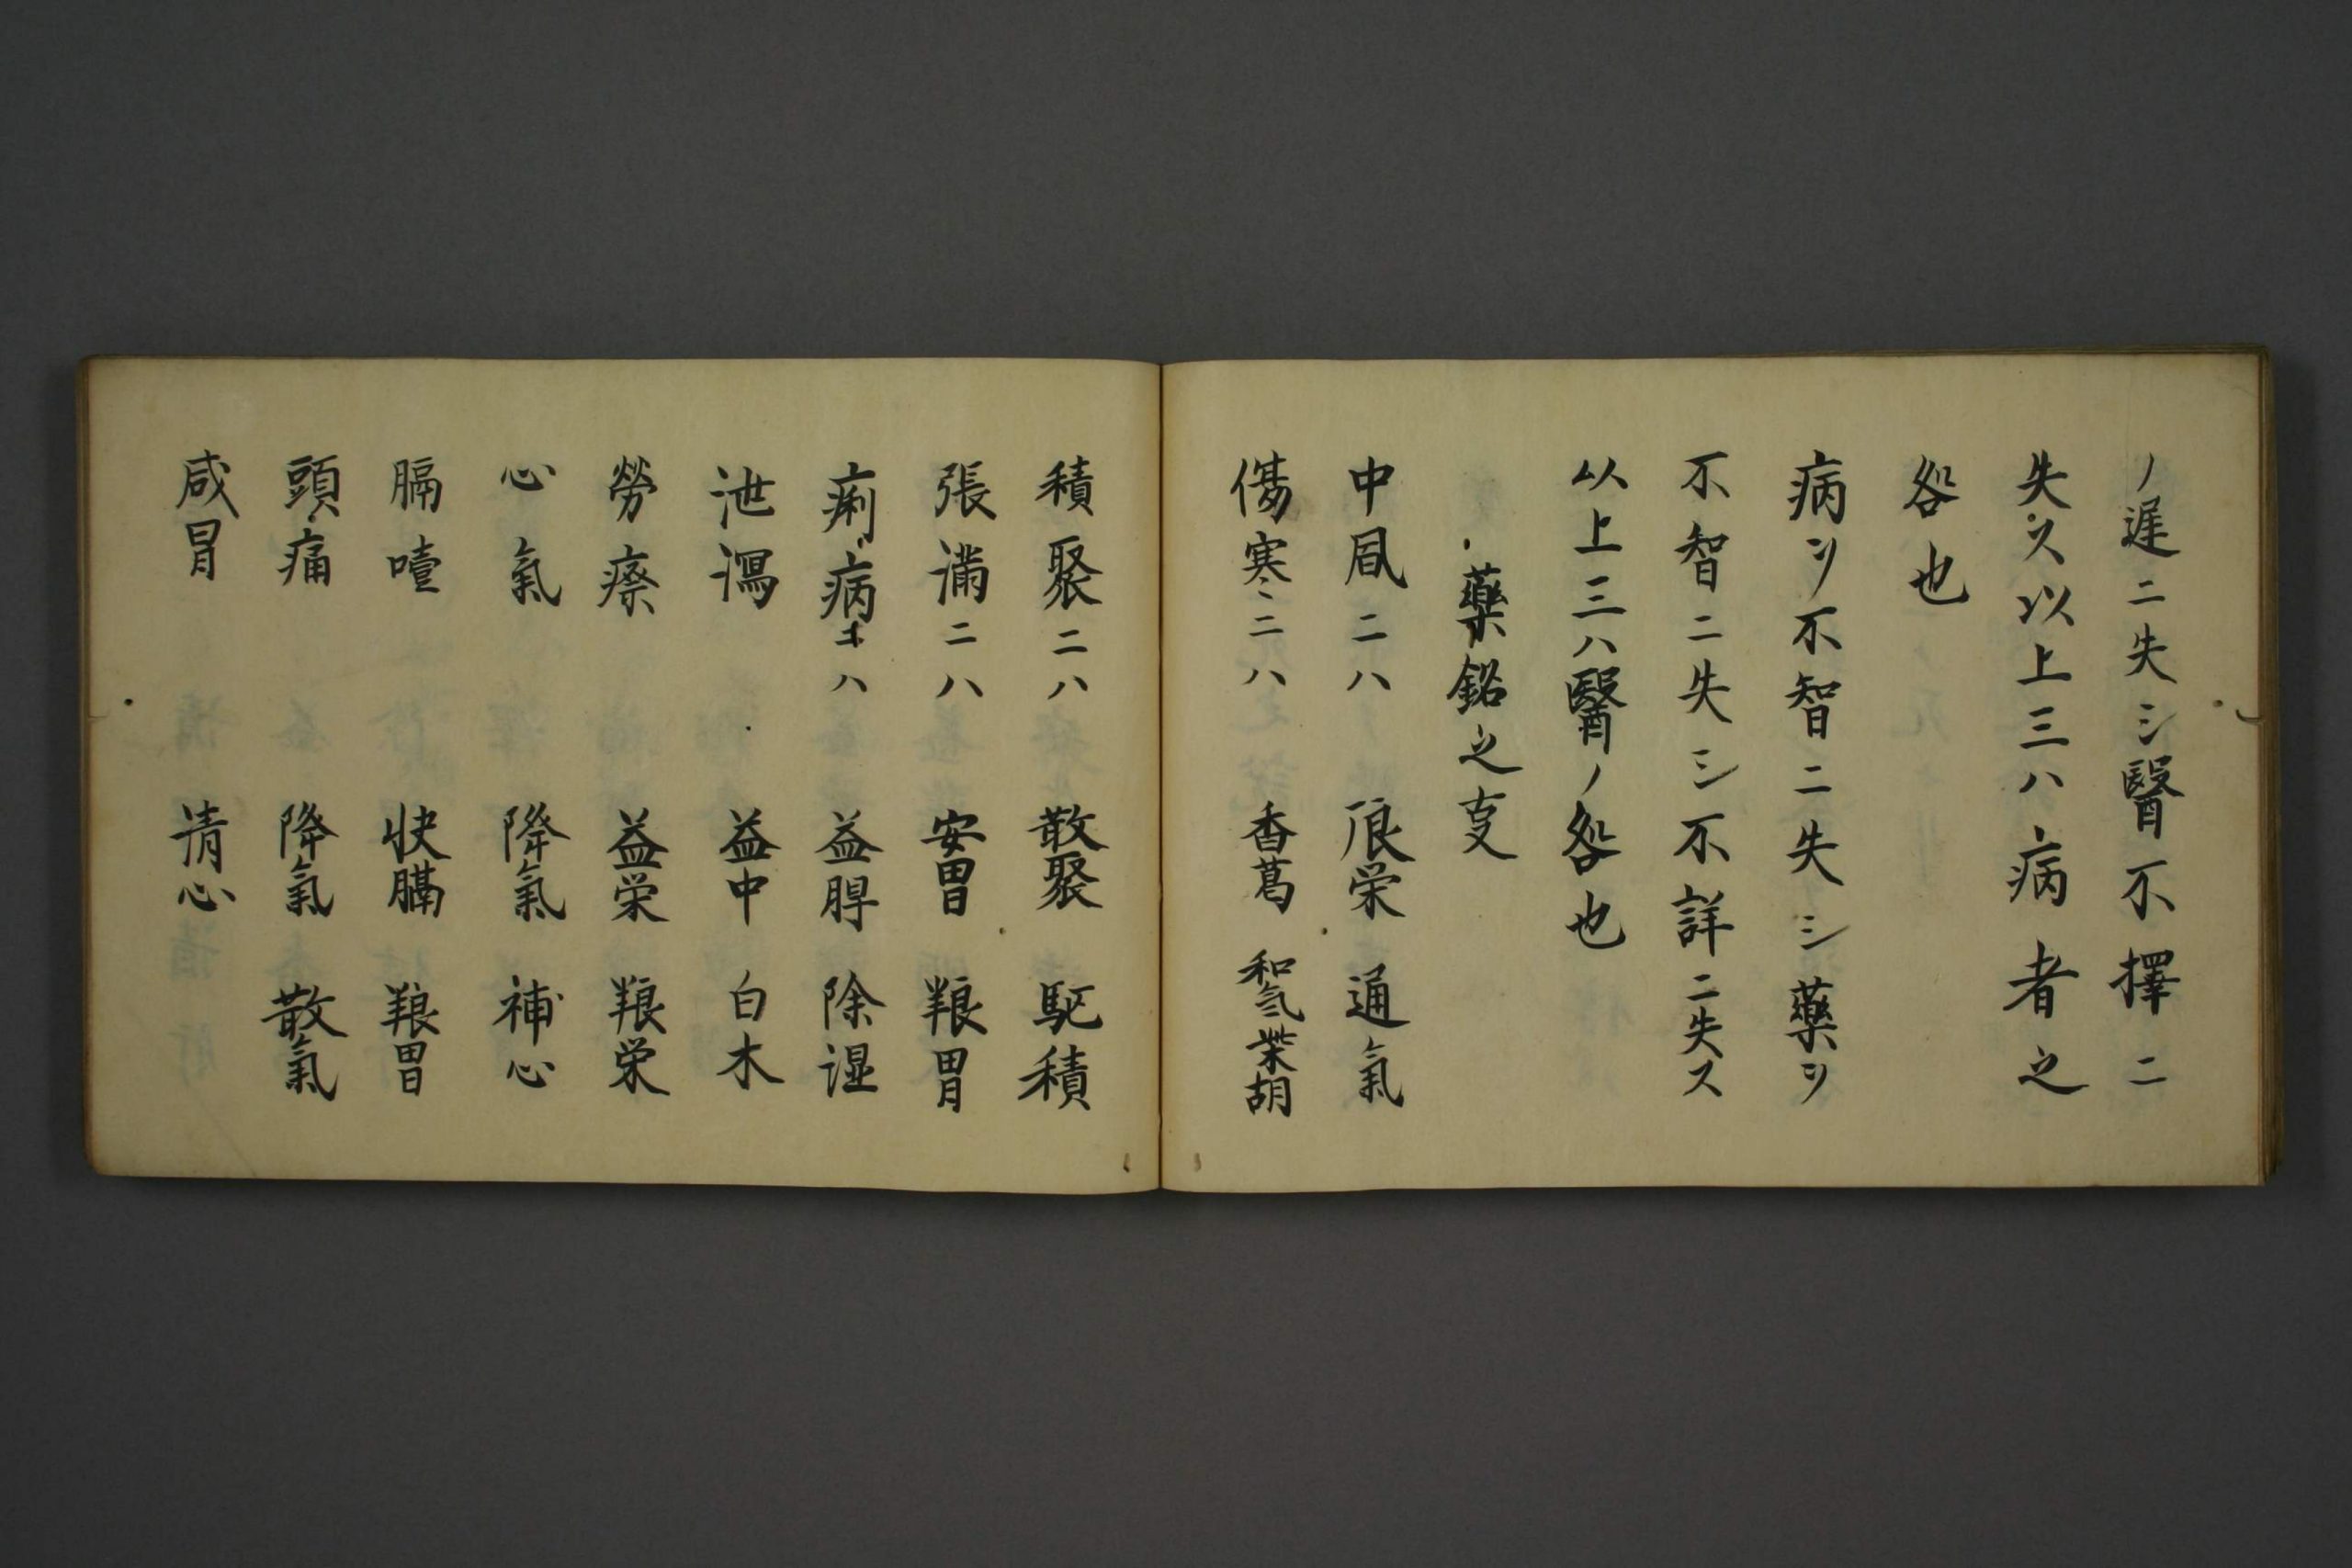 ノ遅ニ失シ醫不擇ニ
失ス以上三ハ病者之
咎也
病ヲ不智ニ失シ藥ヲ
不智ニ失シ不詳ニ失ス
以上三ハ醫ノ咎也
藥銘之叓
中風ニハ 養栄 通氣
傷寒ニハ 香葛 和氣 柴胡
積聚ニハ 散聚 駈積
張満ニハ 安胃 養胃
痢病ニハ 益脾 除湿
泄瀉 益中 白木
勞瘵 益栄 養栄
心氣 降氣 補心
膈噎 快膈 養胃
頭痛 降氣 散氣
咸冒 清心